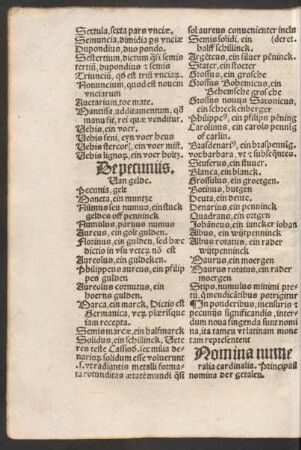 Sextula, sexta pars vnciæ.
Semuncia, dimidia ps vnciæ
Dupondius, duo pondo.
Sestertium, dictum qſi semis
tertiū, dupondius ⁊ semis
Triunciū, qđ est triū vnciaȝ.
Nonuncium, quod est nouem
vnciarum
Auctarium, toe mate.
Mantissa, additamentum, qđ
manu fit, rei quæ venditur.
Vehis, ein voer.
Vehis feni, eyn voer heus
Vehis stercor, ein voer mist.
Vehis lignoȝ, ein voer holtz.
De pecuniis.
Van gelde.
Pecunia, gelt
Moneta, ein muntz
Nummus seu numus, ein stuck
geldes off penninck
Numulus, paruus numus
Aureus, ein golt gulden.
Florinus, ein gulden, sed hæc
dictio in vsu veteȝ nō est
Aureolus, ein guldeken.
Philippeus aureus, ein philip
pes gulden
Aureolus cornutus, ein
hoerns gulden.
Marca, ein marck, Dictio est
Germanica, veȝ plærisque
iam recepta.
Semis marcæ, ein halfmarck
Solidus, ein schillinck. Vete
res teste Cassiod. sex milia de-
nariȝ solidum esse voluerunt
.s. vt radiantis metalli forma-
ta rotunditas ætatē mundi qſi
sol aureus conuenienter inclu
Semis solidi, ein (deret.
halff schillinck.
Argēteus, ein siluer pēninck.
Stater, ein stoeter
Grossus, ein grosche
Grossus Bohemicus, ein
Behemsche grosche
Grossus nouus Saxonicus,
ein schreckenberger
Philippeus, ein philips pēning
Carolinus, ein carolo penning
of carlin.
Brasdenarius, ein braspennīg.
vox barbara, vt ⁊ subsequētes.
Stuferus, ein stuuer.
Blanca, ein blanck.
Grossulus, ein groetgen.
Botinus, butgen
Deuta, ein deute.
Denarius, ein penninck
Quadrans, ein ortgen
Iohāneus, ein iuncker iohan
Albus, ein wijtpenninck
Albus rotatus, ein rader
wijtpenninck
Maurus, ein moergen
Maurus rotatus, ein rader
moergen
Stips, numulus minimi pre
tij, q mendicantibus porrigitur
In ponderibus, mensuris ⁊
pecunijs significandis, inter-
dum noua fingenda sunt nomi
na, ita tamen vt latinam mone
tam representent
Nomina nume
ralia cardinalia. Principall
nomina der getalen.